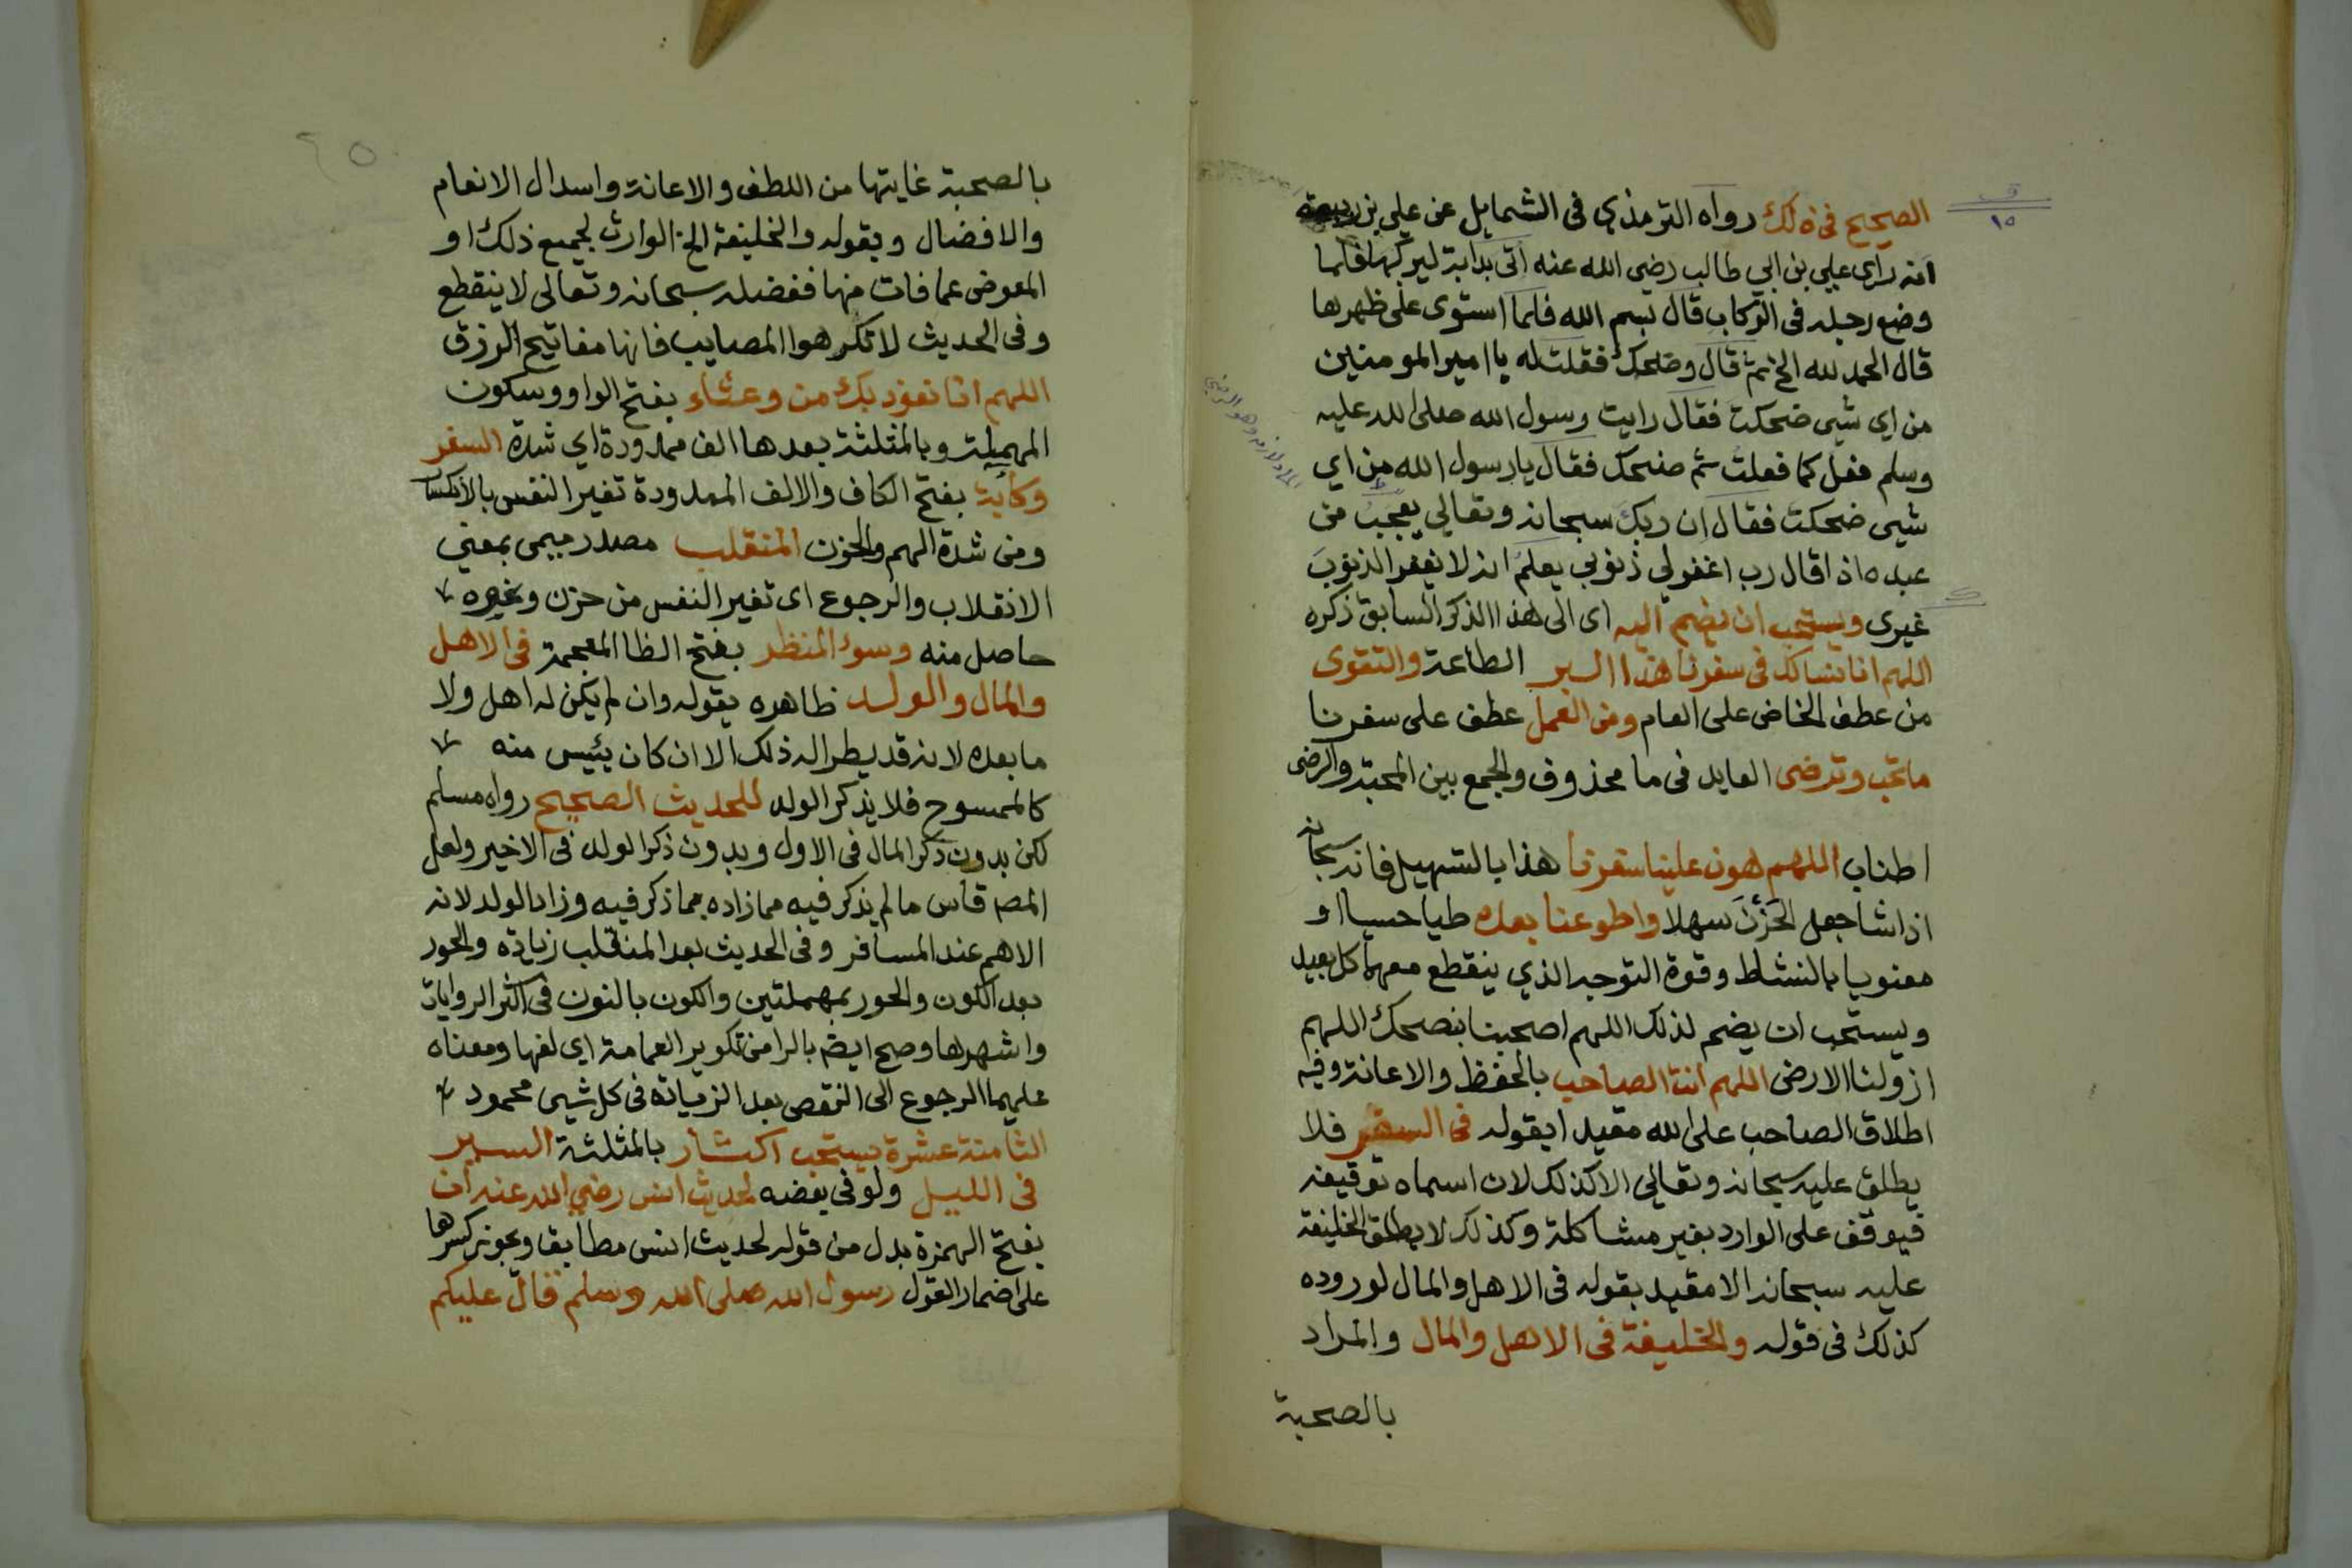 الصحيح فى ذلك رواه الترمذي فى الشمايل عن علي بن ربيعة
انه راى علي بن ابي طالب رضى الله عنه اتى بدابة ليركبها فلما
وضع رجله فى الركاب قال بسم الله فلما استوى على ظهرها
قال الحمد لله الخ ثم قال وضحك فقلت له يا امير المومنين
من اي شيى ضحكت فقال رايت رسول الله صلى الله عليه
وسلم فعل كما فعلت ثم ضحك فقال يا رسول الله من اي
شيى ضحكت فقال ان ربك سبحانه وتعالي يعجب من
عبده اذا قال رب اغفر لي ذنوبي يعلم انه لا يغفر الذنوب
غيرى ويستحب ان يضم اليه اى الى هذا الذكر السابق ذكره
اللهم انا نسالك فى سفرنا هذا البر الطاعة والتقوى
من عطف الخاص على العام ومن العمل عطف على سفرنا
ما تحب وترضى العايد فى ما محذوف والجمع بين المحبة والرضى
اطناب اللهم هون علينا سفرنا هذا بالتسهيل فانه سبحانه
اذا شا جعل الحزن سهلا واطو عنا بعده طيا حسيا او
معنويا بالنشاط وقوة التوجه الذي ينقطع معهما كل بعيد
ويستحب ان يضم لذلك اللهم اصحبنا بنصحك اللهم
ازو لنا الارض اللهم انت الصاحب بالحفظ والاعانة وفيه
اطلاق الصاحب على الله مقيدا بقوله فى السفر فلا
يطلق عليه سبحانه وتعالي الا كذلك لان اسماه توقيفه
فيوقف على الوارد بغير مشاكلة وكذلك لا يطلق الخليفة
عليه سبحانه الا مقيد بقوله فى الاهل والمال لوروده
كذلك فى قوله والخليفة فى الاهل والمال والمراد
بالصحبة
بالصحبة غايتها من اللطف والاعانة واسدال الانعام
والافضال وبقوله والخليفة الخ الوارث لجميع ذلك او
المعوض عما فات منها ففضله سبحانه وتعالى لا ينقطع
وفى الحديث لا تكرهوا المصايب فانها مفاتيح الرزق
اللهم انا نعوذ بك من وعثاء بفتح الواو وسكون
المهملة وبالمثلثة بعدها الف ممدودة اي شدة السفر
وكآبة بفتح الكاف والالف الممدودة تغير النفس بالانكسا
ومن شدة الهم والحزن المنقلب مصدر ميمى بمعني
الانقلاب والرجوع اى تغير النفس من حزن وغيره
حاصل منه وسوء المنظر بفتح الظا المعجمة فى الاهل
والمال والولد ظاهره يقوله وان لم يكن له اهل ولا
ما بعده لانه قد يطرا له ذلك الا ان كان يئيس منه
كالممسوح فلا يذكر الولد للحديث الصحيح رواه مسلم
لكن بدون ذكر المال فى الاول وبدون ذكر الولد فى الاخير ولعل
المص قاس ما لم يذكر فيه مما زاده بما ذكر فيه وزاد الولد لانه
الاهم عند المسافر وفى الحديث بعد المنقلب زيادة والحور
بعد الكون والحور بمهملتين والكون بالنون فى اكثر الروايات
واشهرها وصح ايضا بالرا من تكوير العمامة اي لفها ومعناه
عليهما الرجوع الى النقص بعد الزيادة فى كل شيى محمود
الثامنة عشرة يستحب اكثار بالمثلثة السير
فى الليل ولو فى بعضه لحديث انس رضي الله عنه ان
بفتح الهمزة بدل من قوله لحديث انس مطابق ويجوز كسرها
على اضمار القول رسول الله صلى الله وسلم قال عليكم